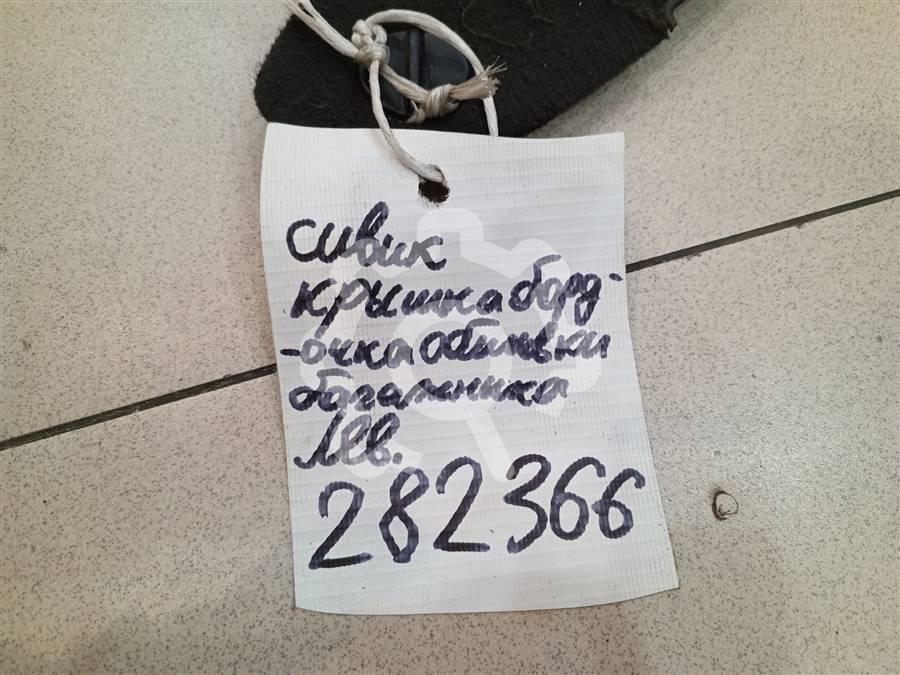 сивик
крышка бард-
-очка обшивки
багажника
лев.
282366